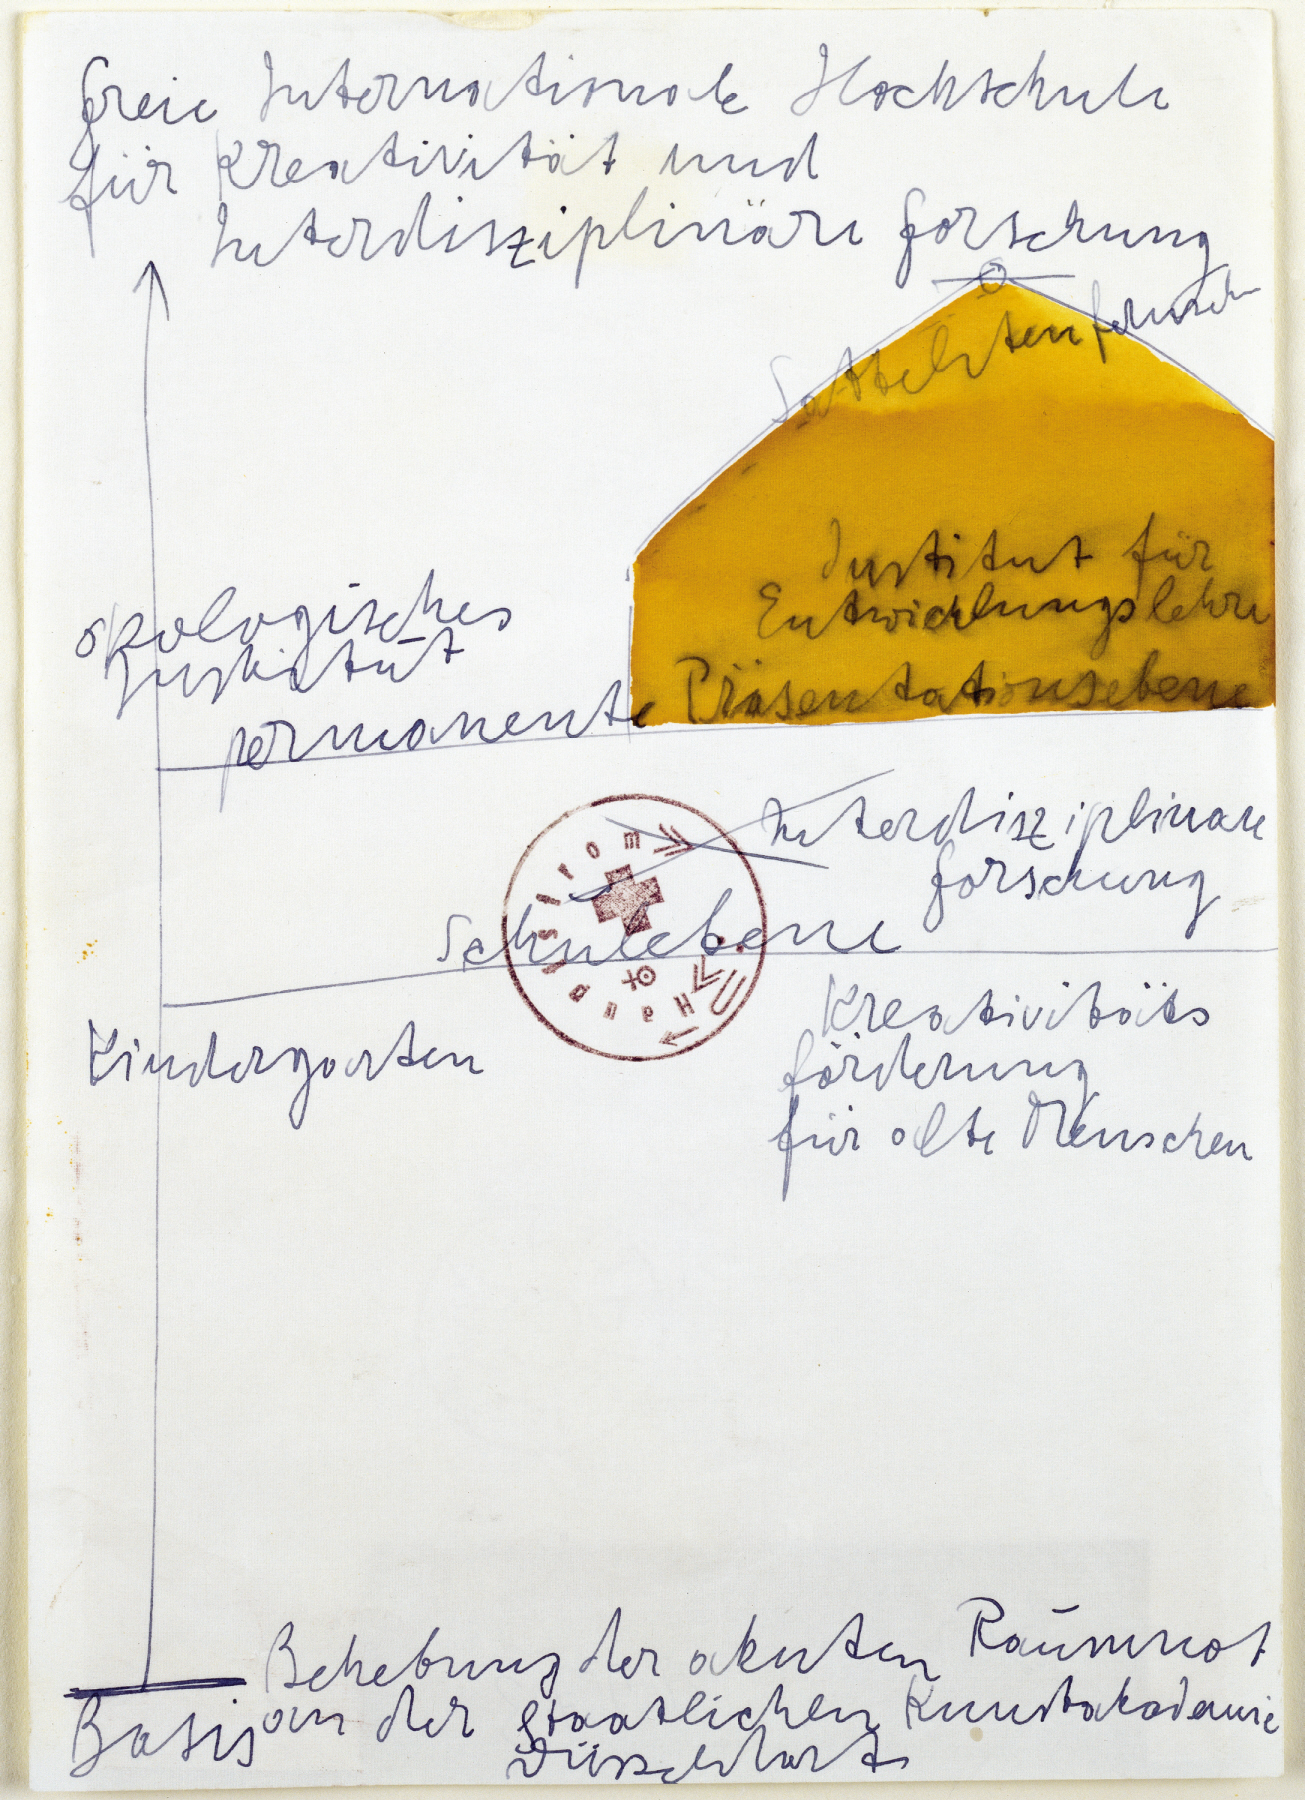 freie Internationale Hochschule
für Kreativität und
Interdisziplinäre forschung
Satteliten fernseh
Institut für
Entwicklungslehre
ökologisches
Institut
permanente Präsentationsebene
Interdisziplinare
forschung
Hauptstrom
Schulebene
Kreativitäts
Kindergarten
förderung
für alte Menschen
Behebung der akuten Raumnot
Basis an der Staatlichen Kunstakademie
Düsseldorf